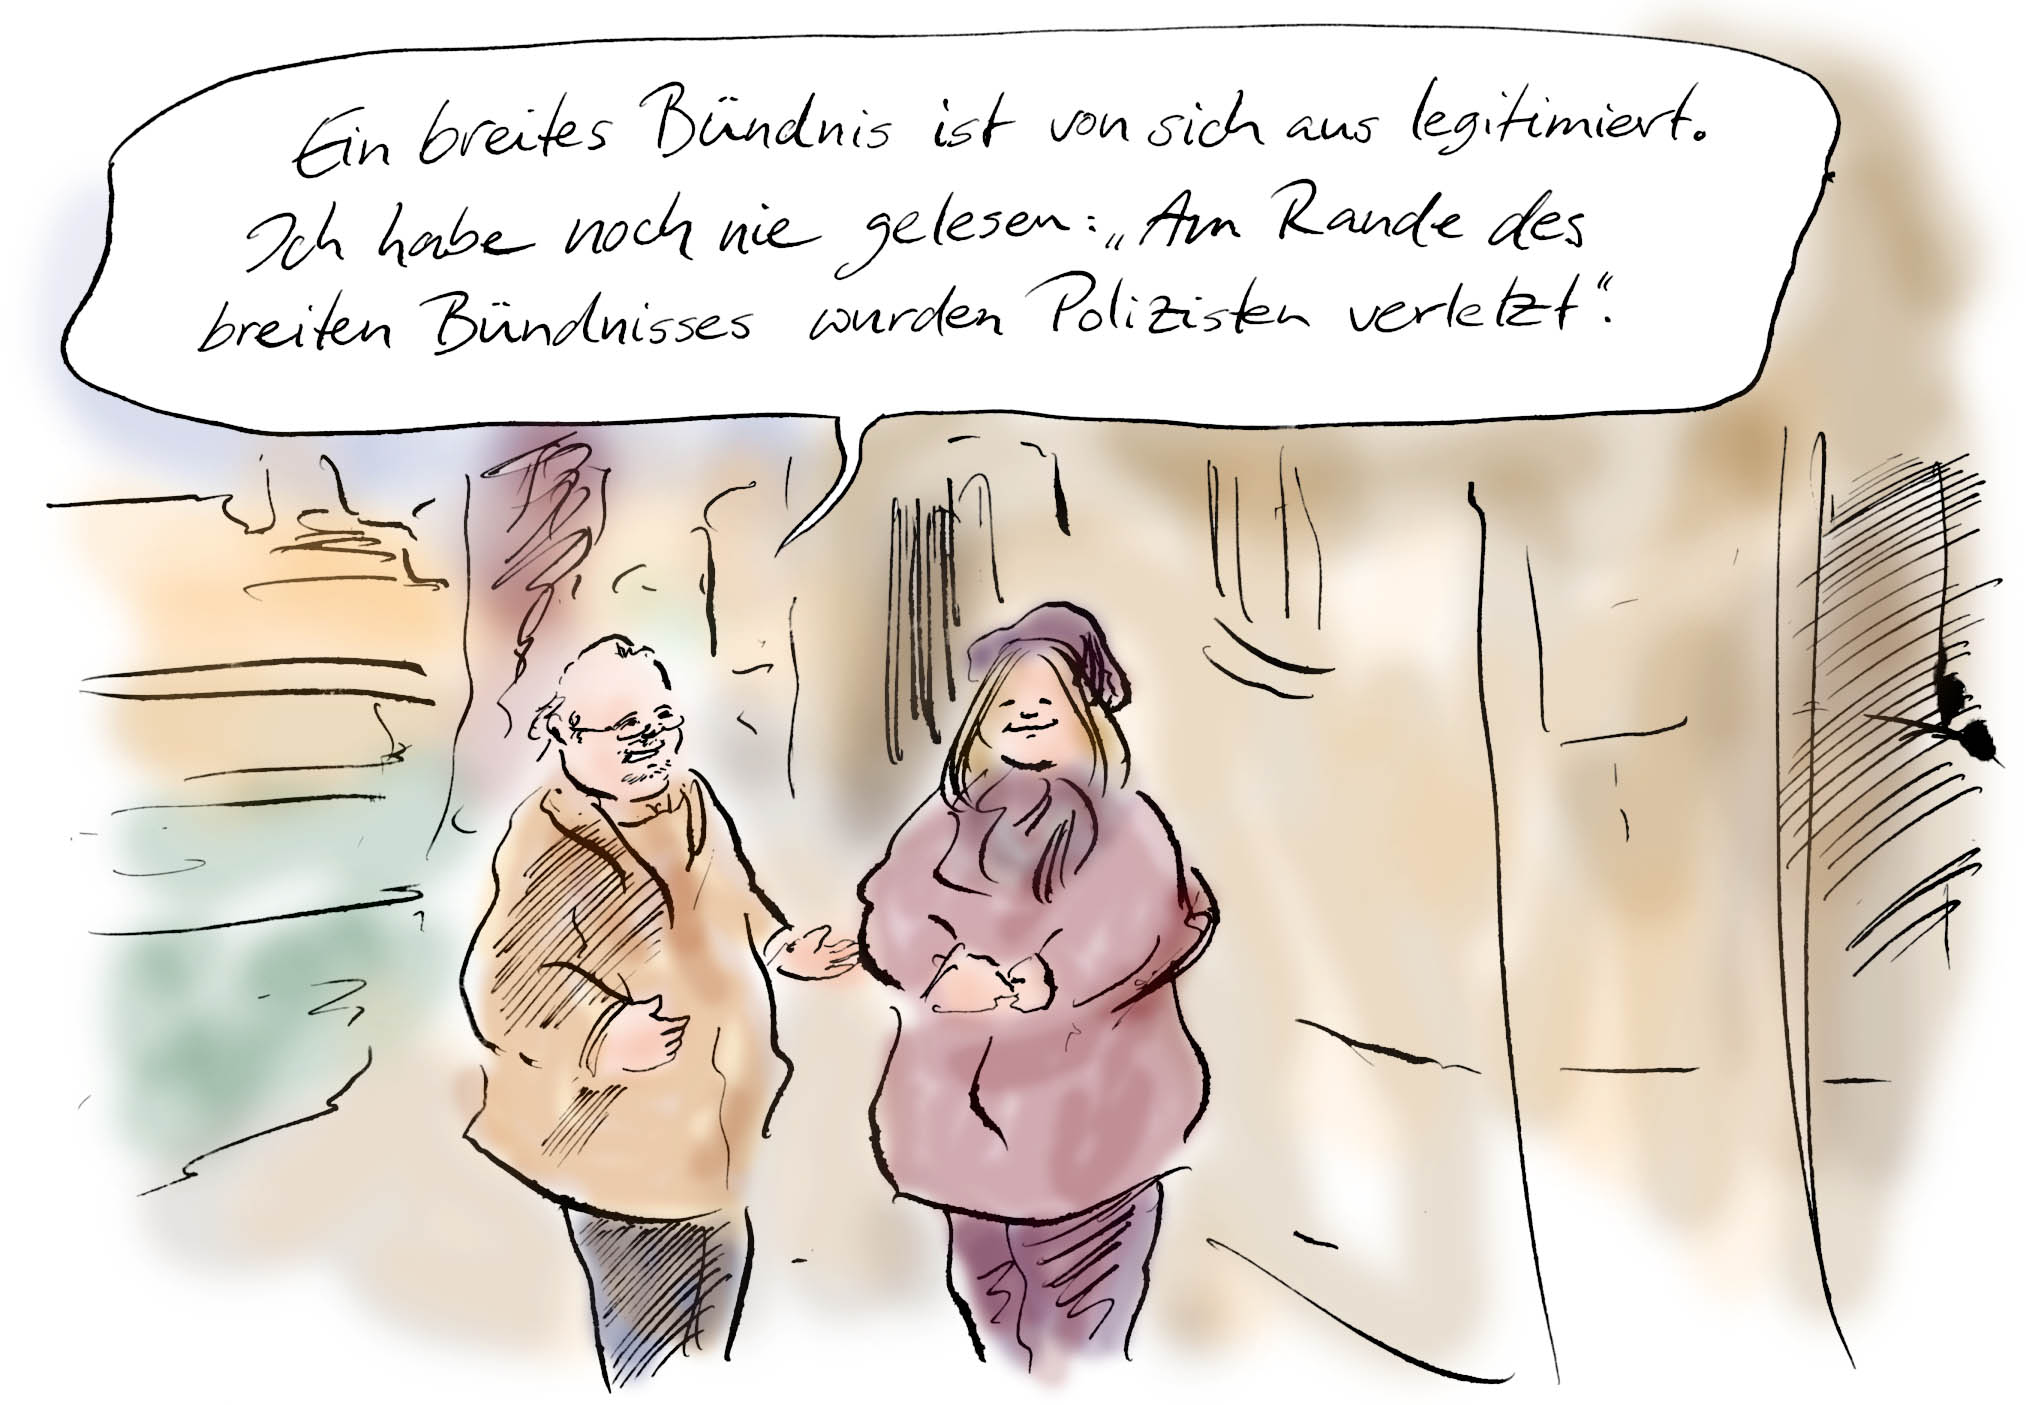 Ein breites Bündnis ist von sich aus legitimiert.
Ich habe noch nie gelesen: „Am Rande des
breiten Bündnisses wurden Polizisten verletzt“.